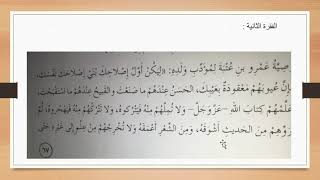 الفقرة الثانية :
وصيّة عَمرو بنِ عُتبة لمؤدّب ولدِه: «ليكُن أوّل إصلاحِكَ بَنيّ إصلاحَكَ نفسَك،
فإنّ عيوبَهُم معقودةٌ بعيبِك، الحَسَنُ عندَهُم ما صَنَعْتَ والقبيحُ عندَهُم ما استَقبَحتَ،
علّمهُم كِتابَ الله -عزّ وجلّ- ولا تُمِلَّهُم مِنهُ فيترُكوه، ولا تَترُكهُم مِنهُ فيهجُروه، ثُمّ
روّهِم مِنَ الحديثِ أشرَفَه، ومِنَ الشّعرِ أعفّهُ ولا تُخرِجهُم مِن عِلمٍ إلى غَيرِه حتّى
٦٧